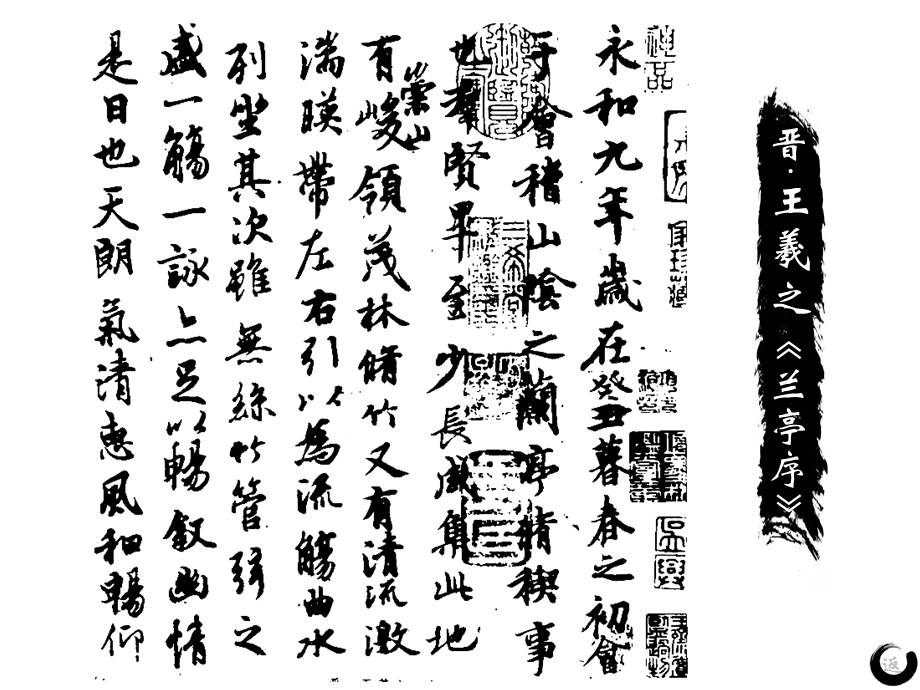 晋·王羲之《兰亭序》
永和九年歲在癸丑暮春之初會
于會稽山陰之蘭亭脩稧事
也羣賢畢至少長咸集此地
有崇山峻領茂林脩竹又有清流激
湍暎帶左右引以為流觴曲水
列坐其次雖無絲竹管弦之
盛一觴一詠亦足以暢敘幽情
是日也天朗氣清惠風和暢仰
神品
返